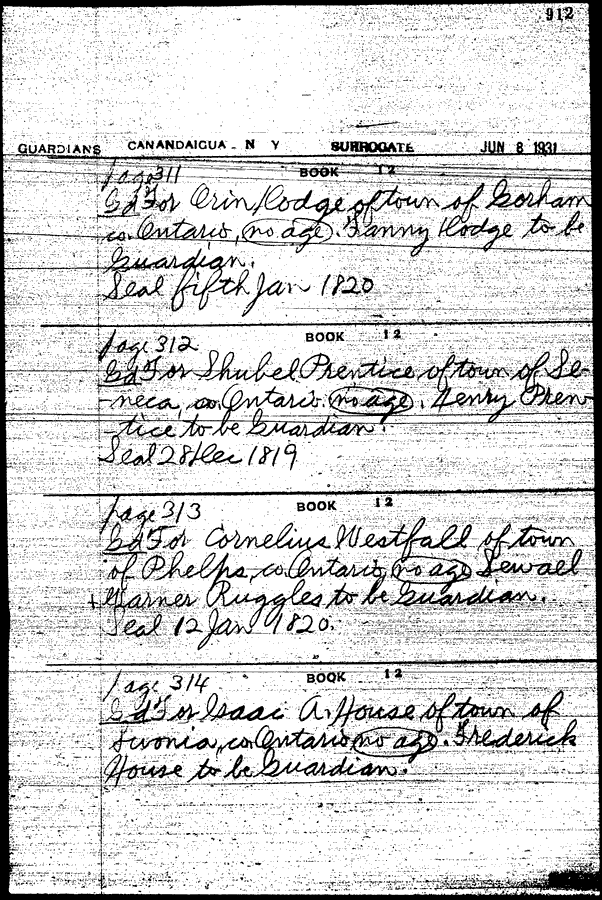 912
GUARDIANS CANANDAIGUA. N Y SURROGATE JUN 8 1931
page 311 BOOK 12
Gd For Orin Hodge of town of Gorham
co. Ontario, no age. Fanny Hodge to be
Guardian.
Seal fifth Jan 1820
page 312 BOOK 12
Gd For Shubel Prentice of town of Se-
neca, co. Ontario. no age. Henry Pren-
tice to be Guardian.
Seal 28 Dec 1819
page 313 BOOK 12
Gd For Cornelius Westfall of town
of Phelps, co. Ontario, no age Sewall
Warner Ruggles to be Guardian.
Seal 12 Jan 1820.
page 314 BOOK 12
Gd For Isaac A. House of town of
Livonia, co. Ontario no age. Frederick
House to be Guardian.